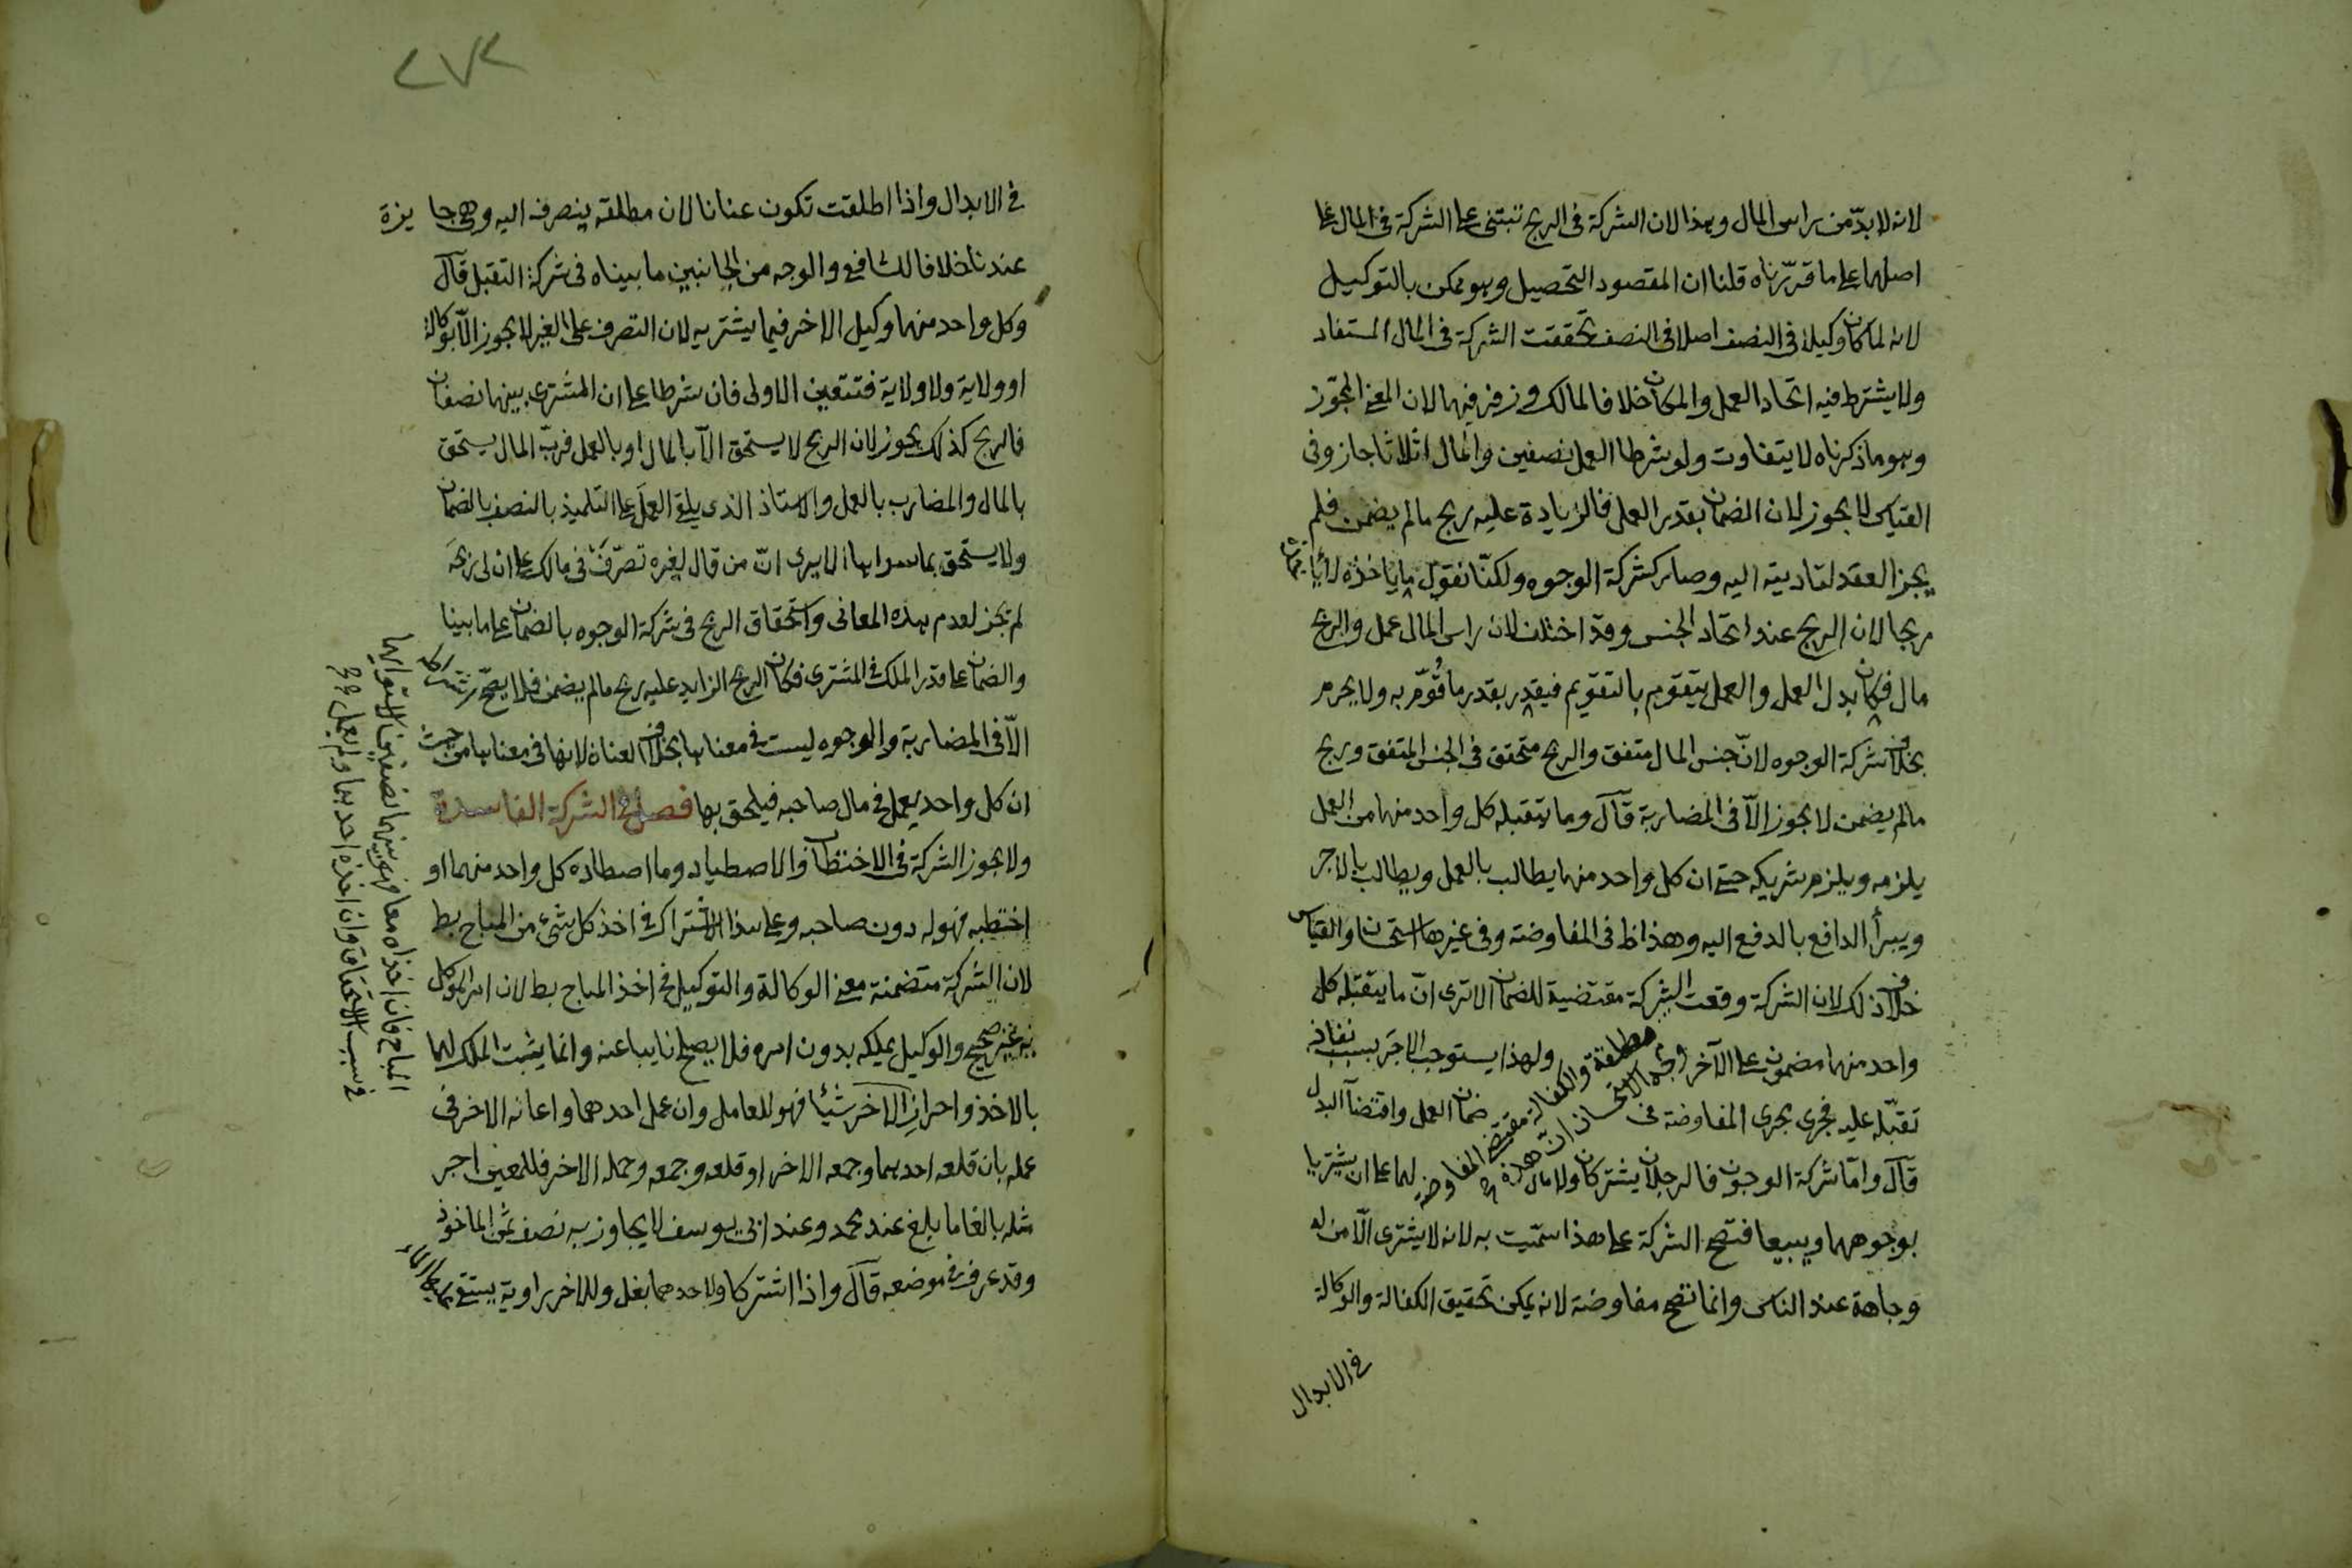 لانه لا بدّ من راس المال وهذا لان الشركة فى الربح تبتنى على الشركة فى المال على
اصلهما على ما قررّناه قلنا ان المقصود التحصيل وهو ممكن بالتوكيل
لانه لما كان وكيلا فى النصف اصلا فى النصف تحققت الشركة فى المال المستفاد
ولا يشترط فيه اتحاد العمل والمكان خلافا لمالك وزفر فيهما لان المعنى المجوّز
وهو ما ذكرناه لا يتفاوت ولو شرطا العمل نصفين والمال اثلاثا جاز وفى
القياس لا يجوز لان الضمان بقدر العمل فالزيادة عليه ربح مالم يضمن فلم
يجز العقد لتاديته اليه وصار كشركة الوجوه ولكنّا نقول ما ياخذه لا ياخذه
ربحا لان الربح عند اتحاد الجنس وقد اختلف لان راس المال عمل والربح
مال فكان بدل العمل والعمل يتقوم بالتقويم فيقدر بقدر ما قُوّم به ولا يحرم
بخلاف شركة الوجوه لانّ جنس المال متفق والربح متحقق فى الجنس المتفق وربح
مالم يضمن لا يجوز الّا فى المضاربة قآل وما يتقبله كل واحد منهما من العمل
يلزمه ويلزم شريكه حتى ان كل واحد منهما يطالب بالعمل ويطالب بالاجر
ويبرأ الدافع بالدفع اليه وهذا ظ فى المفاوضة وفى غيرها استحسان والقياس
خلاف ذلك لان الشركة وقعت الشركة مقتضية للضمان الا ترى انّ ما يتقبله كل
واحد منهما مضمون على الآخر ولهذا يستوجب الاجر بسبب نفاذ
مطلقة والكفالة مقتضى المفاوضة
وجه الاستحسان انّ هذه
تقبّله عليه فجرى مجرى المفاوضة فى ضمان العمل واقتضآ البدل
قآل وامّا شركة الوجوه فالرجلان يشتركان ولا مال لهما على ان يشتريا
بوجوههما ويبيعا فتصح الشركة على هذا سمّيت به لانه لا يشترى الّا من له
وجاهة عند الناس وانما تصح مفاوضة لانه يمكن تحقيق الكفالة والوكالة
فى الابدال
٢٧٢
فى الابدال واذا اطلقت تكون عنانا لان مطلقه ينصرف اليه وهى جايزة
عندنا خلافا للشافعى والوجه من الجانبين ما بيناه فى شركة التقبل قآل
وكل واحد منهما وكيل الاخر فيما يشتريه لان التصرف على الغير لا يجوز الّا بوكالة
او ولاية ولا ولاية فتتعين الاولى فان شرطا على ان المشترى بينهما نصفان
فالربح كذلك يجوز لان الربح لا يستحق الّا بالمال او بالعمل فربّ المال يستحق
بالمال والمضارب بالعمل والاستاذ الذى يلقى العمل على التلميذ بالنصف بالضمان
ولا يستحق بما سواها الا يرى انّ من قال لغيره تصرّف فى مالك على ان لى ربحه
لم يجز لعدم هذه المعانى واستحقاق الربح فى شركة الوجوه بالضمان على ما بينا
والضمان على قدر الملك فى المشترى فكان الربح الزايد عليه ربح مالم يضمن فلا يصحّ شرطه
الّا فى المضاربة والوجوه ليست فى معناها بخلاف العنان لانها فى معناها من حيث
ان كل واحد يعمل فى مال صاحبه فيلحق بها فصل فى الشركة الفاسدة
ولا يجوز الشركة فى الاحتطاب والاصطياد وما اصطاده كل واحد منهما او
احتطبه فهو له دون صاحبه وعلى هذا الاشتراك فى اخذ كل شىء من المباح بط
لان الشركة متضمنة معنى الوكالة والتوكيل فى اخذ المباح بط لان امر الموكل
به غير صحيح والوكيل يملكه بدون امره فلا يصلح نايبا عنه وانما يثبت الملك لهما
بالاخذ واحراز الآخر شيئا فهو للعامل وان عمل احدهما واعانه الاخر فى
عمله بان قلعه احدهما وجمعه الاخر او قلعه وجمعه وحمله الاخر فللمعين اجر
مثله بالغا ما بلغ عند محمد وعند ابى يوسف لا يجاوز به نصف ثمن الماخوذ
وقد عرف فى موضعه قآل واذا اشتركا ولاحدهما بغل وللاخر راوية يستقى عليها الماء
المباح فان اخذاه معا فهو بينهما نصفين لاستوايهما
فى سبب الاستحقاق وان اخذه احدهما ولم يعمل